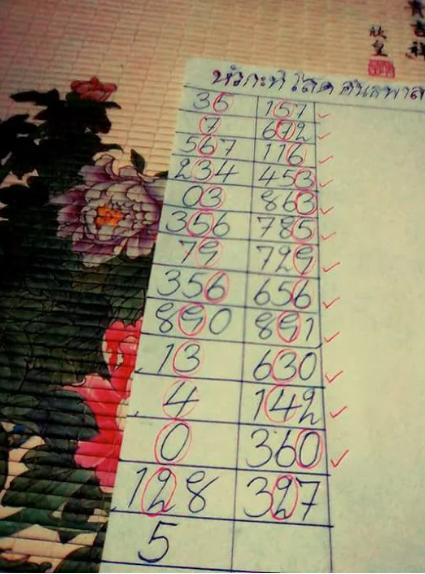 หัวกะทิ
36 157
7 672
567 116
234 453
03 863
356 785
79 729
356 656
890 891
13 630
4 142
0 360
128 327
5